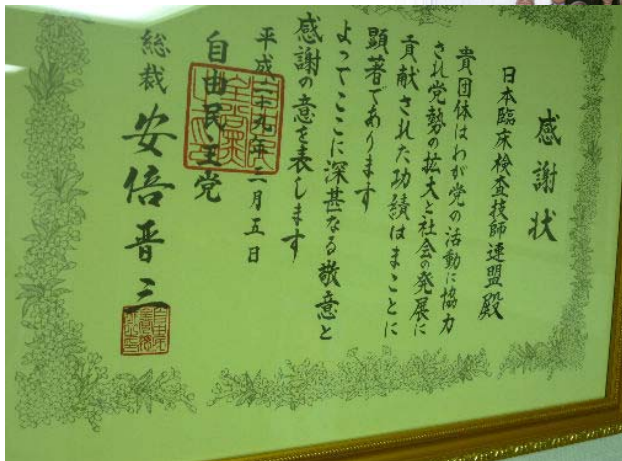 感謝状
日本臨床検査技師連盟殿
貴団体はわが党の活動に協力
され党勢の拡大と社会の発展に
貢献された功績はまことに
顕著であります
よってここに深甚なる敬意と
感謝の意を表します
平成二十九年三月五日
自由民主党
総裁 安倍晋三